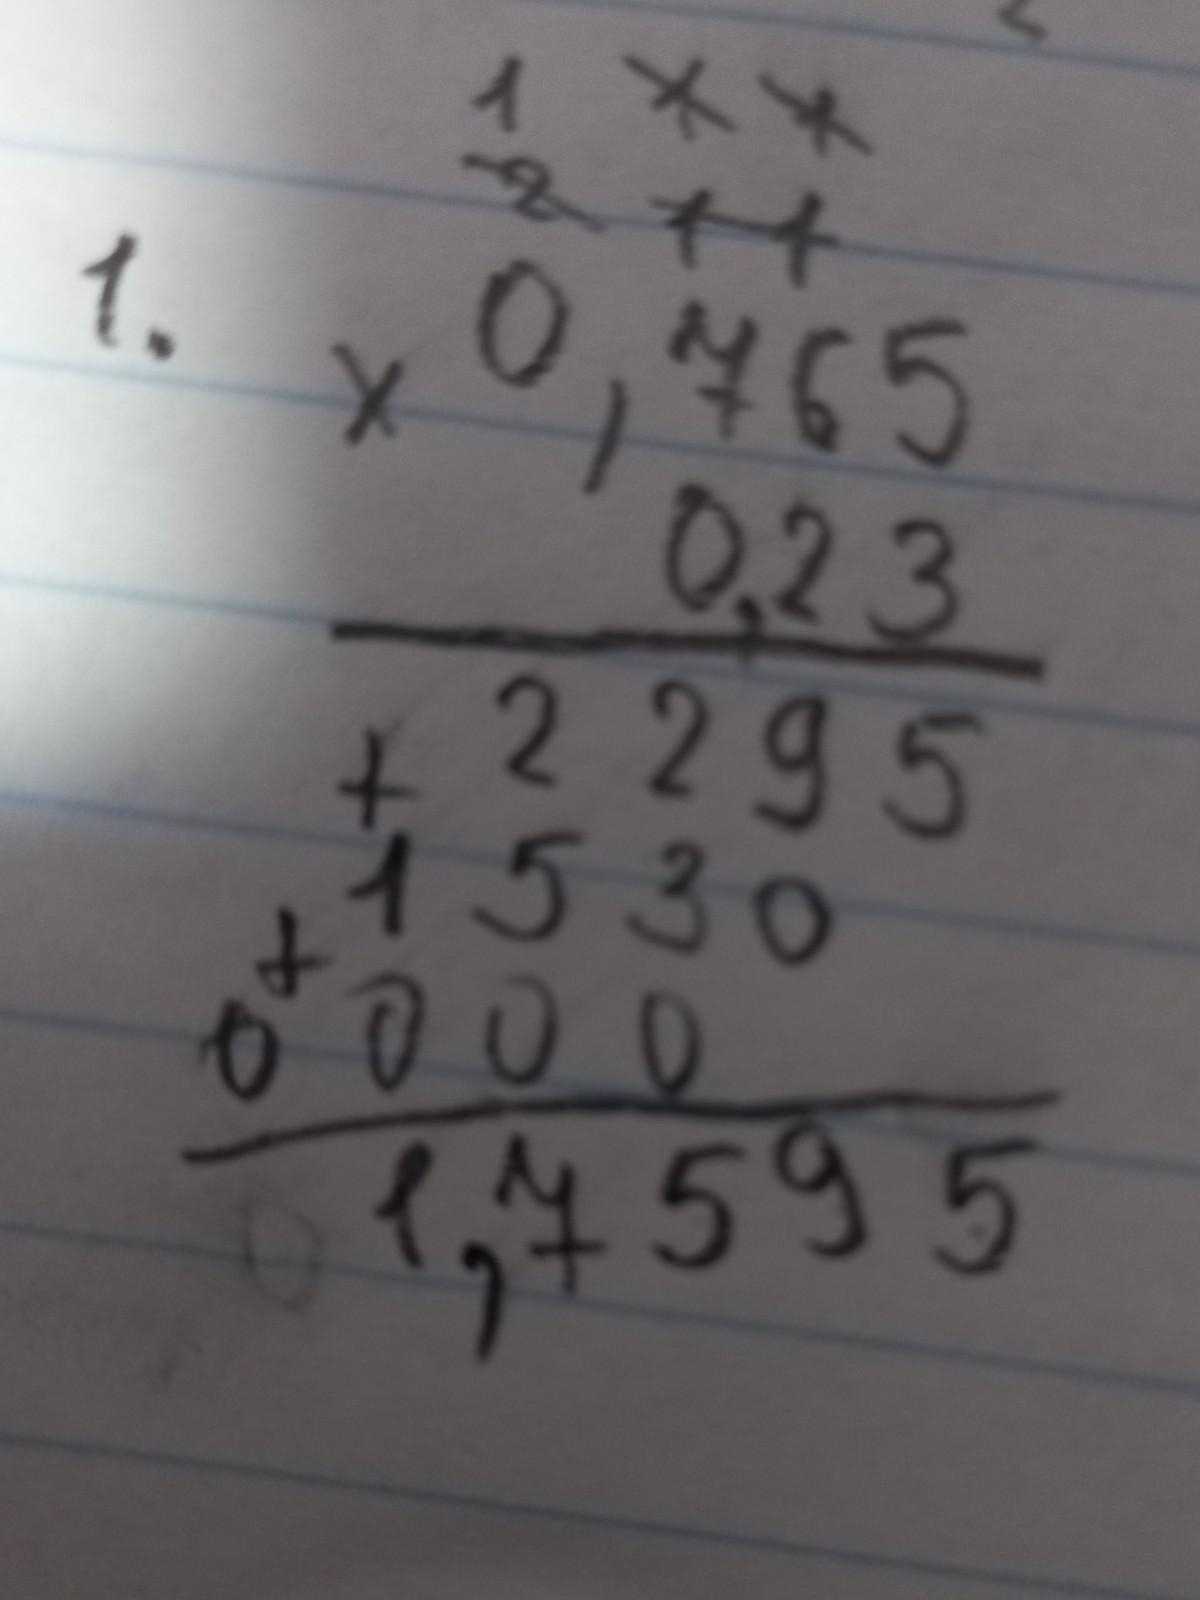 1 × ×
2 1 1
1. 0,765
× 0,23
2295
+ 1530
+ 0000
0 1,7595